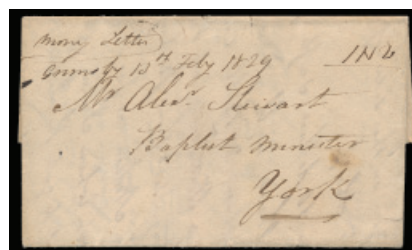 Money Letter
Grimsby 13th Feby 1829
1N6
Mr Alexr Stewart
Baptist Minister
York